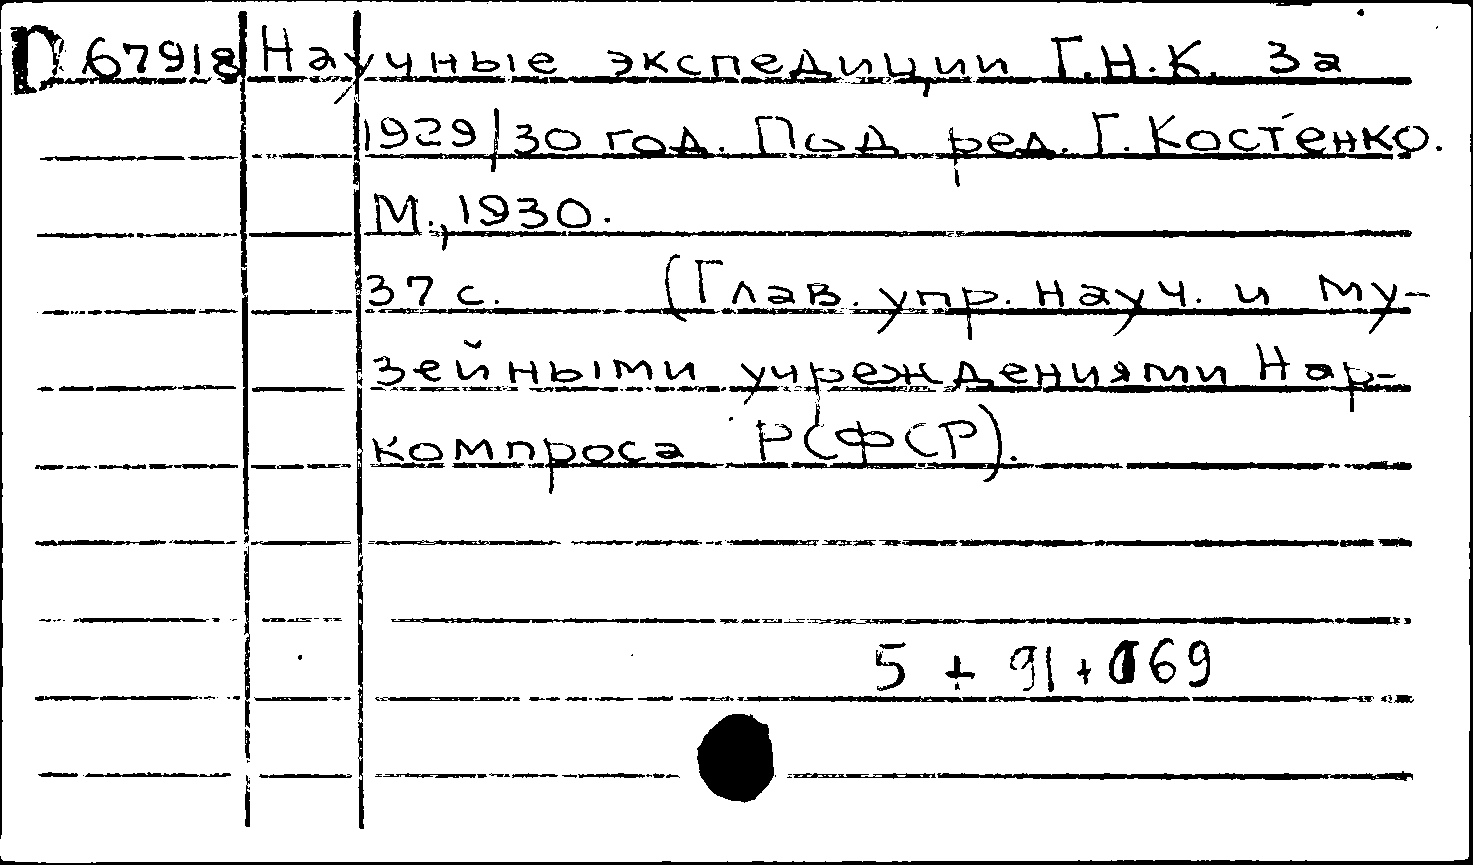 П 67918 Научные экспедиции Г.Н.К. За
1929/30 год. Под ред. Г. Костенко.
М., 1930.
37 с. (Глав. упр. науч. и му-
зейными учреждениями Нар-
компроса РСФСР).
5 + 91 + 069